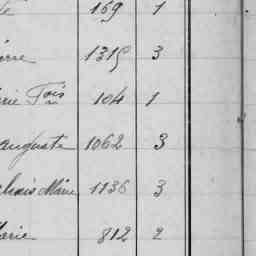 169 1
erre 1315 3
rie Fois 104 1
auguste 1062 3
Marie 1136 3
arie 812 2